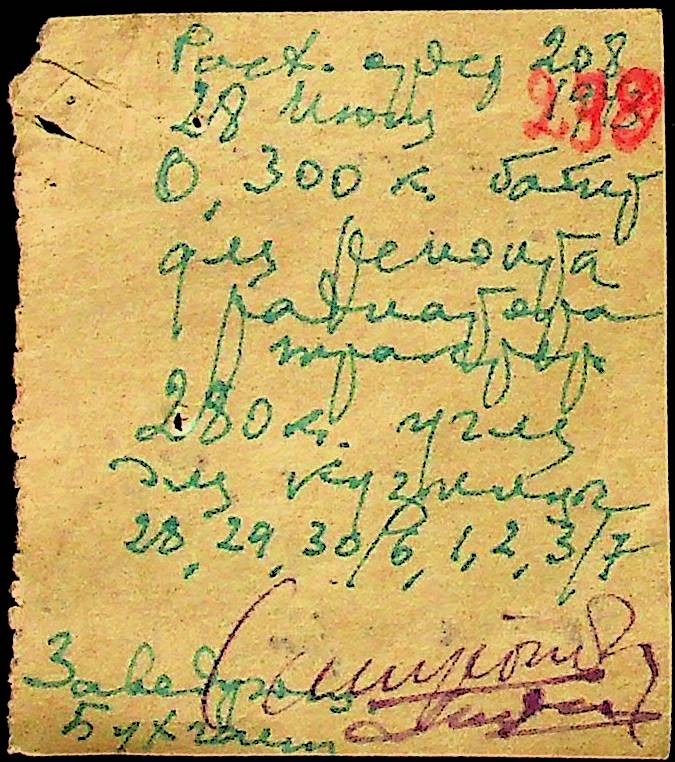 Расх. ордер 208
28 Июня 1943
233
0,300 к. баббит
для ремонта
радиатора
трактора
280 к. угля
для кузницы
28, 29, 30/6, 1, 2, 3/7
Заведующ
Бухгалт